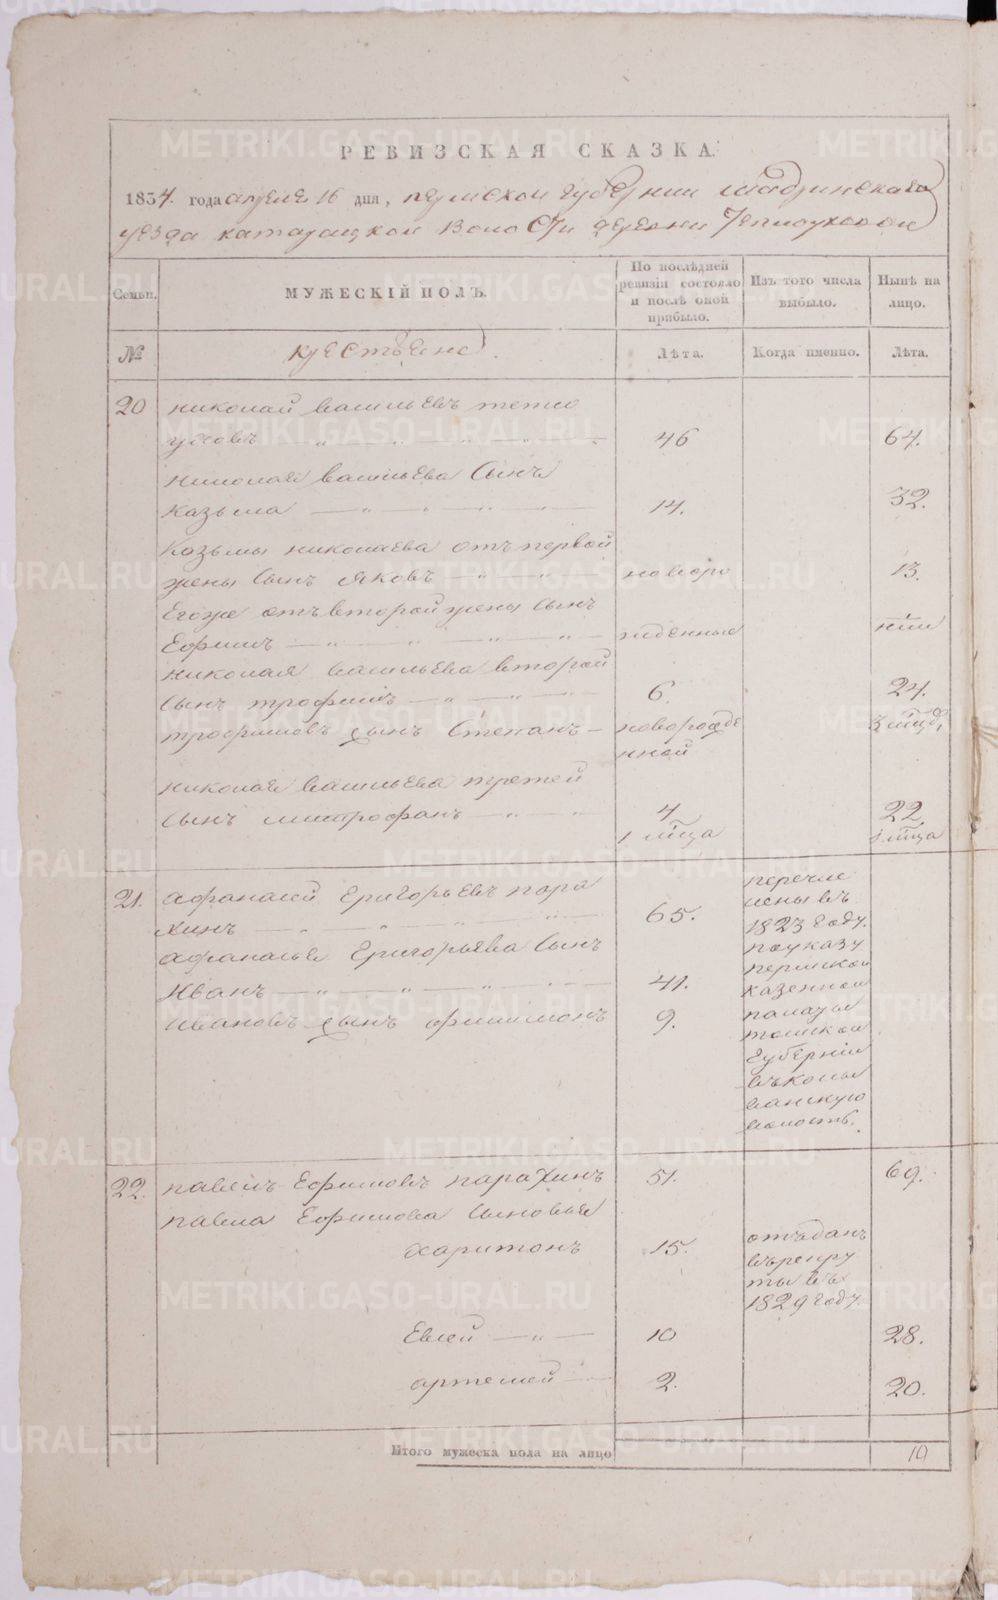 РЕВИЗСКАЯ СКАЗКА.
1834. года апреля 16 дня, пермской губернии шадринскаго
уезда катайцкой Волости деревни
Семьи.
МУЖЕСКІЙ ПОЛЪ.
По послѣдней ревизіи состояло и послѣ оной прибыло.
Изъ того числа выбыло.
Нынѣ на лицо.
№
крестьянѣ.
Лѣта.
Когда именно.
Лѣта.
20 николай васильевъ
46 64.
николая васильева Сынъ
Казьма 14. 32.
Казьмы николаева отъ первой
жены Сынъ Яковъ новоро 13.
Егоже отъ второй жены Сынъ
Ефимъ жденные
николая васильева второй
Сынъ трофимъ 6. 24.
трофимовъ сынъ Степанъ новорожде 3
нной
николая васильева третей
Сынъ митрофанъ 4 22
21. афанасей григорьевъ пара
хинъ 65.
афанасья григорьева Сынъ
Иванъ 41.
Ивановъ сынъ филимонъ 9.
перечис
лены въ
1823 году.
по указу
пермской
казенной
палаты
томской
губерніи
въ колы
ванскую
волость.
22. павелъ Ефимовъ парахинъ 51. 69.
павла Ефимова Сыновья
харитонъ 15.
отъданъ
въ рекру
ты въ
1829 году.
Евсей 10 28.
артемей 2. 20.
Итого мужеска пола на лицо 10
METRIKI.GASO-URAL.RU